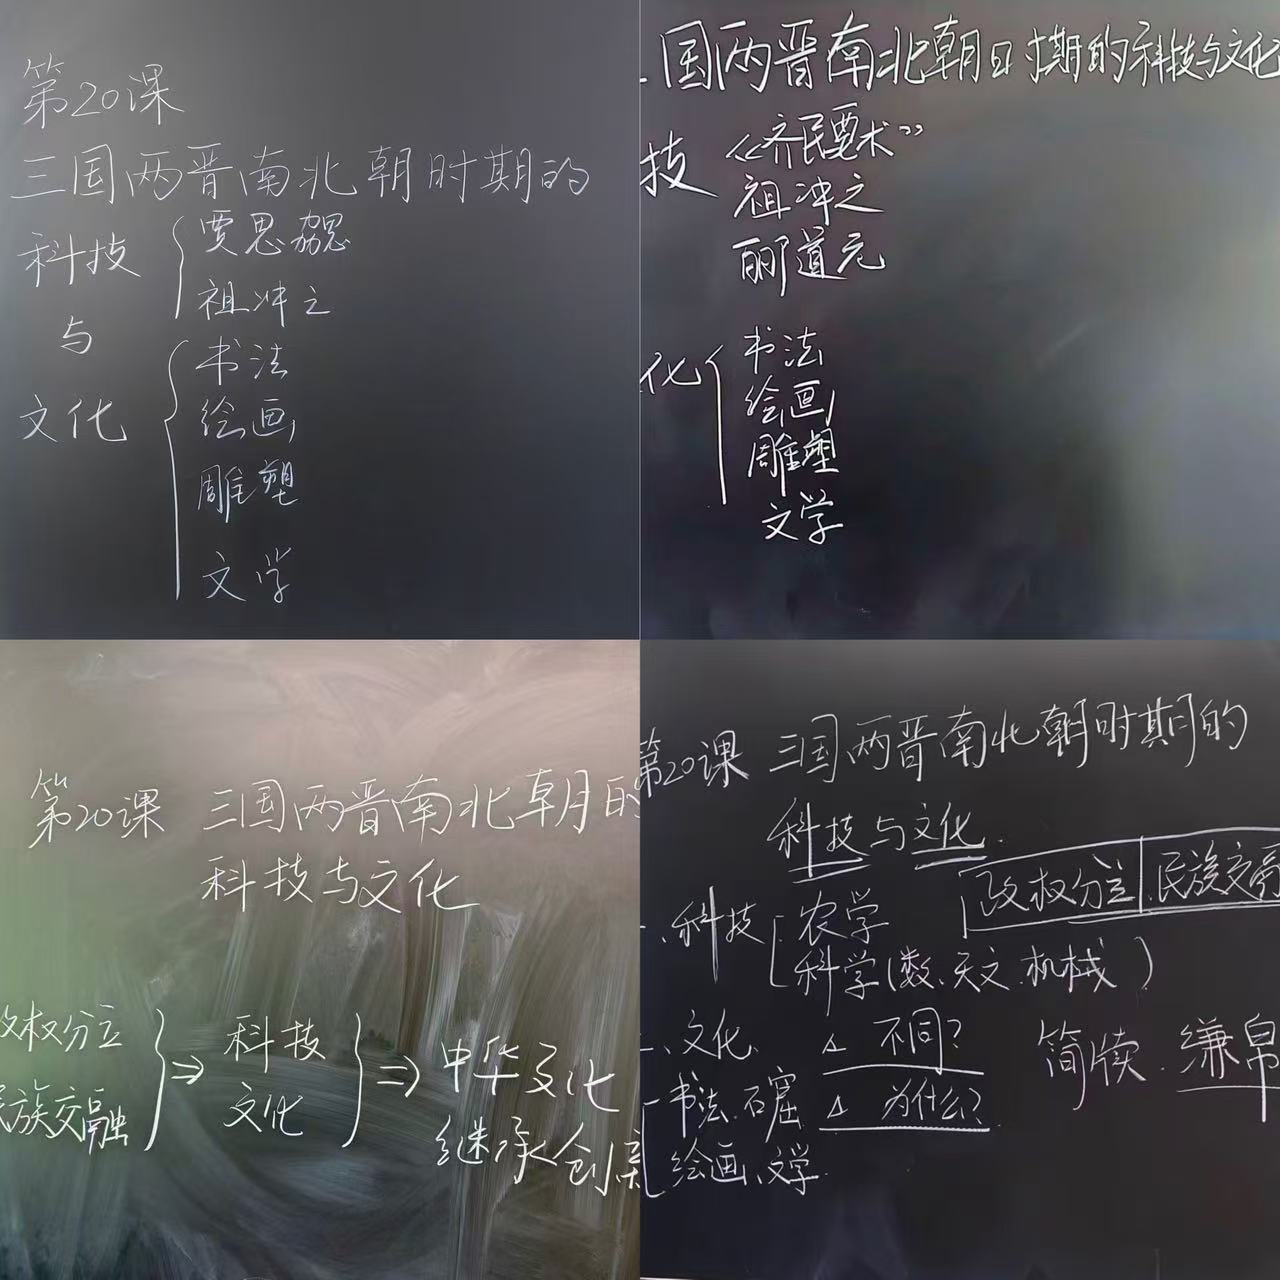 第20课
三国两晋南北朝时期的
科技
与
文化
贾思勰
祖冲之
书法
绘画
雕塑
文学
国两晋南北朝时期的科技与文化
技
《齐民要术》
祖冲之
郦道元
化
书法
绘画
雕塑
文学
第20课 三国两晋南北朝的
科技与文化
政权分立
民族交融
⇒
科技
文化
⇒
中华文化
继承创新
第20课 三国两晋南北朝时期的
科技与文化.
政权分立 民族交融
一.科技
农学
科学(数.天文.机械)
二、文化 △ 不同?
书法.石窟 △ 为什么?
绘画、文学
简牍.缣帛